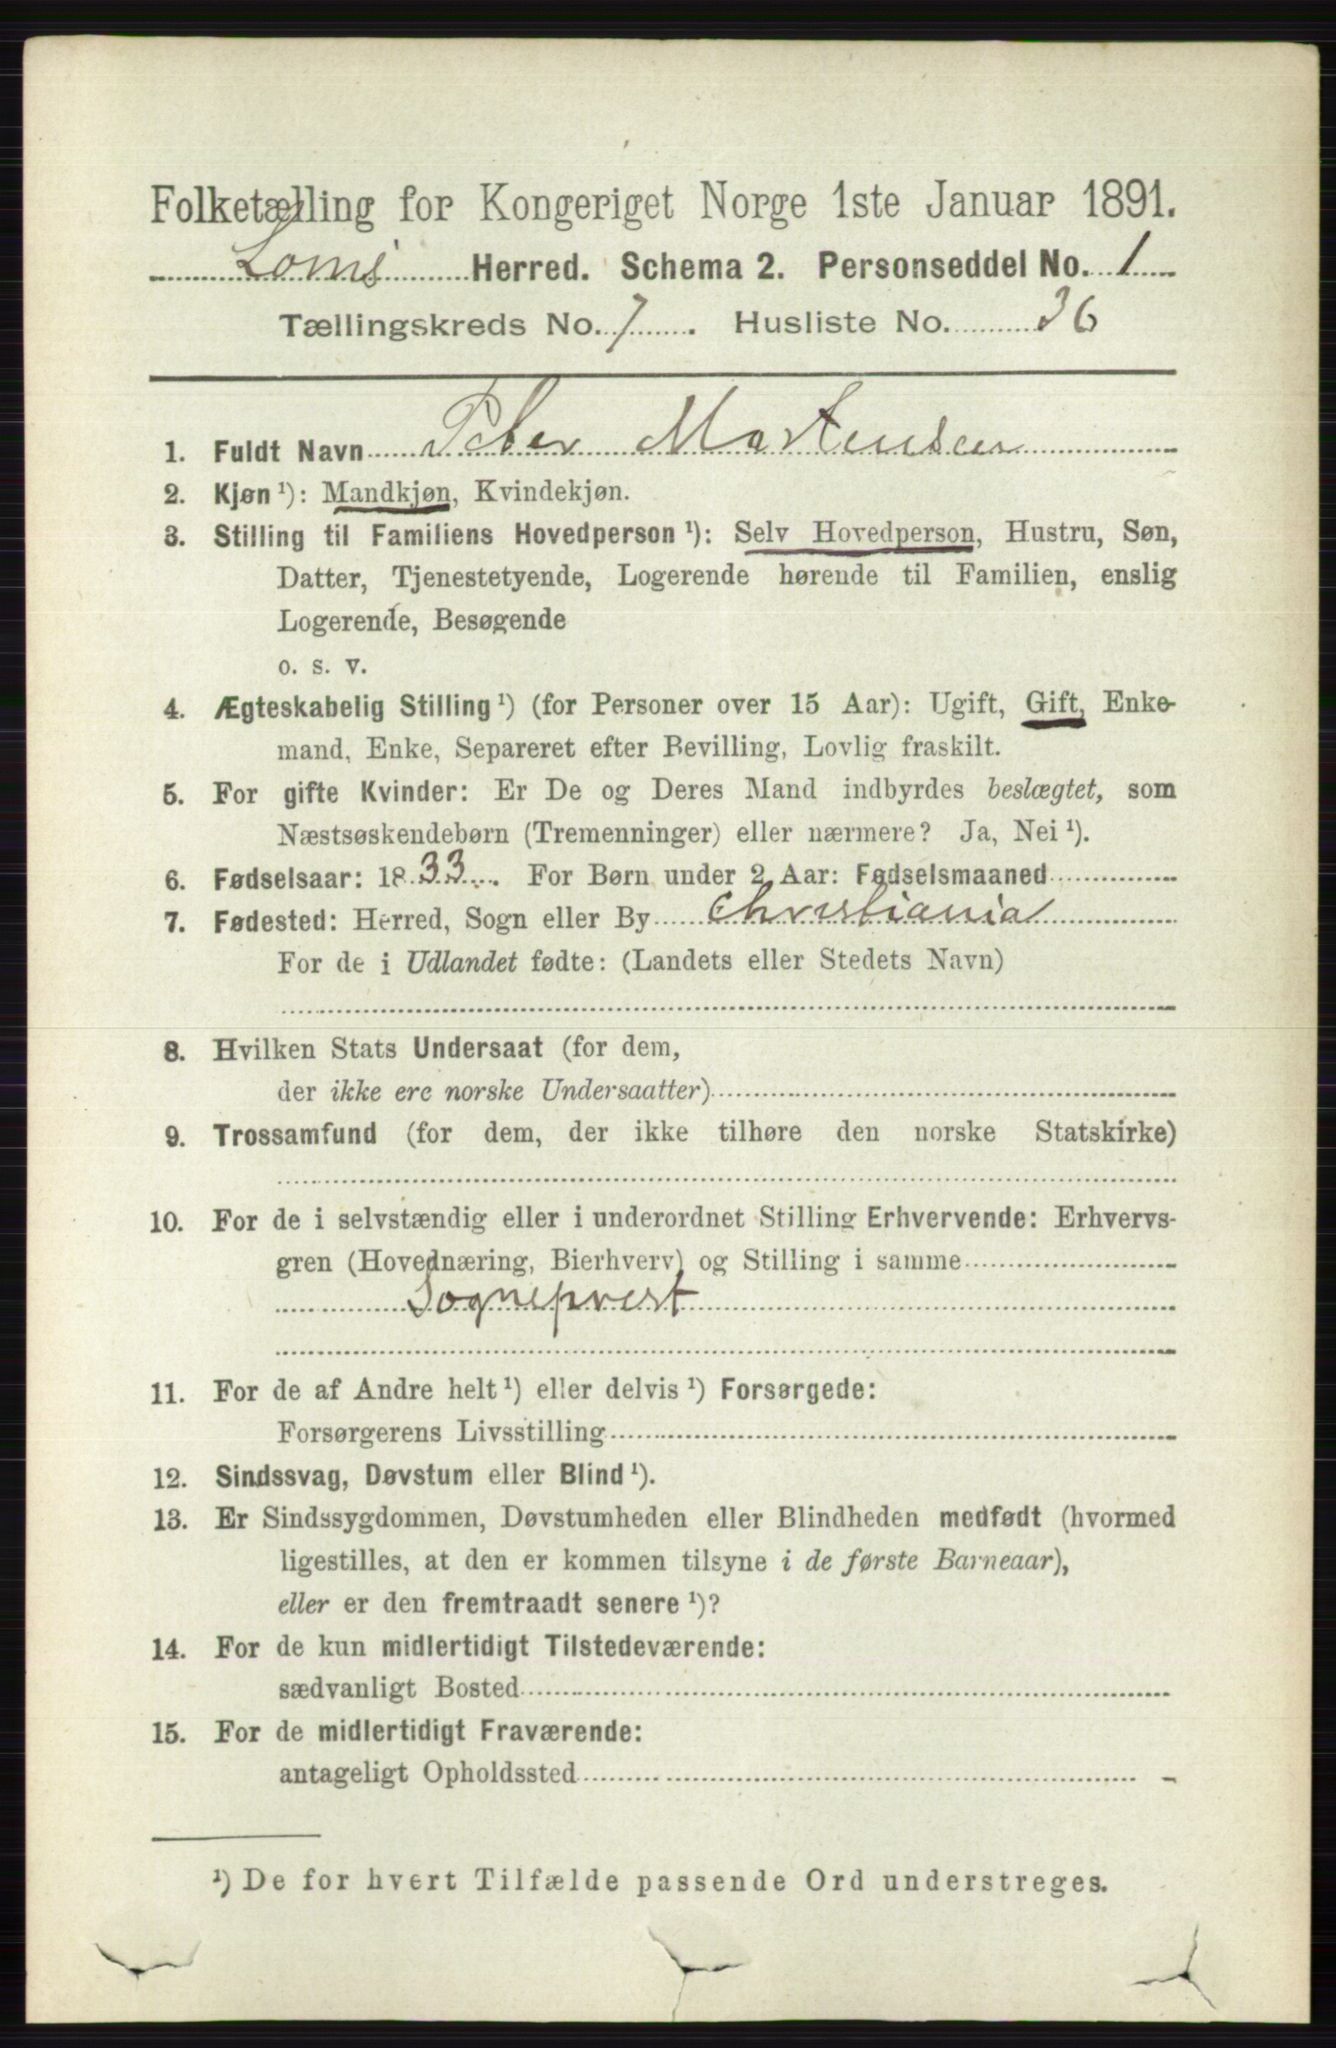 Folketælling for Kongeriget Norge 1ste Januar 1891.
Loms Herred. Schema 2. Personseddel No. 1
Tællingskreds No. 7. Husliste No. 36
1. Fuldt Navn Peter Mortensen
2. Kjøn ¹): Mandkjøn, Kvindekjøn.
3. Stilling til Familiens Hovedperson ¹): Selv Hovedperson, Hustru, Søn,
Datter, Tjenestetyende, Logerende hørende til Familien, enslig
Logerende, Besøgende
o. s. v.
4. Ægteskabelig Stilling ¹) (for Personer over 15 Aar): Ugift, Gift, Enke-
mand, Enke, Separeret efter Bevilling, Lovlig fraskilt.
5. For gifte Kvinder: Er De og Deres Mand indbyrdes beslægtet, som
Næstsøskendebørn (Tremenninger) eller nærmere? Ja, Nei ¹).
6. Fødselsaar: 1833. For Børn under 2 Aar: Fødselsmaaned
7. Fødested: Herred, Sogn eller By Christiania
For de i Udlandet fødte: (Landets eller Stedets Navn)
8. Hvilken Stats Undersaat (for dem,
der ikke ere norske Undersaatter)
9. Trossamfund (for dem, der ikke tilhøre den norske Statskirke)
10. For de i selvstændig eller i underordnet Stilling Erhvervende: Erhvervs-
gren (Hovednæring, Bierhverv) og Stilling i samme
Sogneprest
11. For de af Andre helt ¹) eller delvis ¹) Forsørgede:
Forsørgerens Livsstilling
12. Sindssvag, Døvstum eller Blind ¹).
13. Er Sindssygdommen, Døvstumheden eller Blindheden medfødt (hvormed
ligestilles, at den er kommen tilsyne i de første Barneaar),
eller er den fremtraadt senere ¹)?
14. For de kun midlertidigt Tilstedeværende:
sædvanligt Bosted
15. For de midlertidigt Fraværende:
antageligt Opholdssted
¹) De for hvert Tilfælde passende Ord understreges.